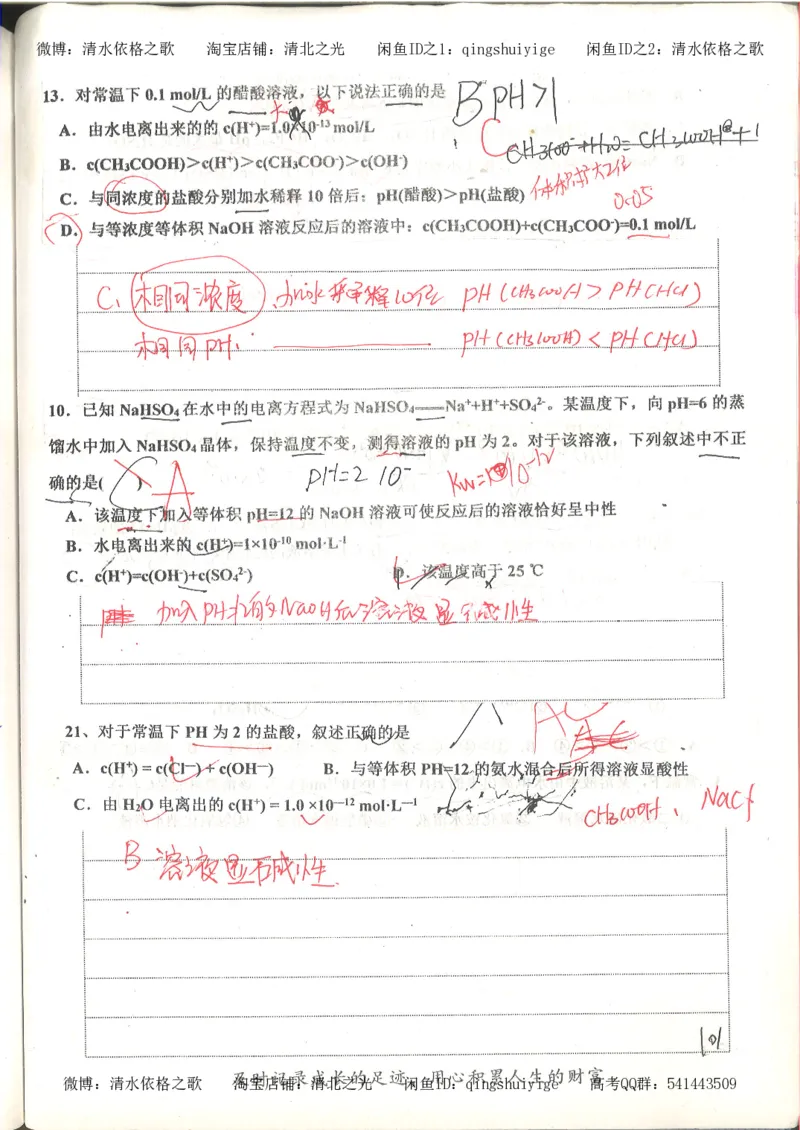 微博：清水依格之歌 淘宝店铺：清北之光 闲鱼ID之1：qingshuiyige 闲鱼ID之2：清水依格之歌
13．对常温下 0.1 mol/L 的醋酸溶液，以下说法正确的是
B PH>1
A．由水电离出来的的 c(H⁺)=1.0×10⁻¹³ mol/L
C
B．c(CH₃COOH)＞c(H⁺)＞c(CH₃COO⁻)＞c(OH⁻)
C．与同浓度的盐酸分别加水稀释 10 倍后：pH(醋酸)＞pH(盐酸)
体积扩大2倍
0.05
D．与等浓度等体积 NaOH 溶液反应后的溶液中：c(CH₃COOH)+c(CH₃COO⁻)=0.1 mol/L
C、相同浓度、加水稀释10倍 pH（CH3COOH > PH（HCl）
相同PH： pH（CH3COOH）< pH（HCl）
10．已知 NaHSO₄ 在水中的电离方程式为 NaHSO₄══Na⁺+H⁺+SO₄²⁻。某温度下，向 pH=6 的蒸
馏水中加入 NaHSO₄ 晶体，保持温度不变，测得溶液的 pH 为 2。对于该溶液，下列叙述中不正
确的是( )
A
pH=2 10⁻
A．该温度下加入等体积 pH=12 的 NaOH 溶液可使反应后的溶液恰好呈中性
B．水电离出来的 c(H⁺)=1×10⁻¹⁰ mol·L⁻¹
C．c(H⁺)=c(OH⁻)+c(SO₄²⁻) D．该温度高于 25 ℃
加入PH=12的NaOH后溶液显碱性
21、对于常温下 PH 为 2 的盐酸，叙述正确的是
AC
A．c(H⁺) = c(Cl—) + c(OH—) B．与等体积 PH=12 的氨水混合后所得溶液显酸性
C．由 H₂O 电离出的 c(H⁺) = 1.0 ×10—12 mol·L—1
CH3COOH、NaCl
B 溶液显碱性.
101
及时记录成长的足迹 用心积累人生的财富
微博：清水依格之歌 淘宝店铺：清北之光 闲鱼ID：qingshuiyige 高考QQ群：541443509